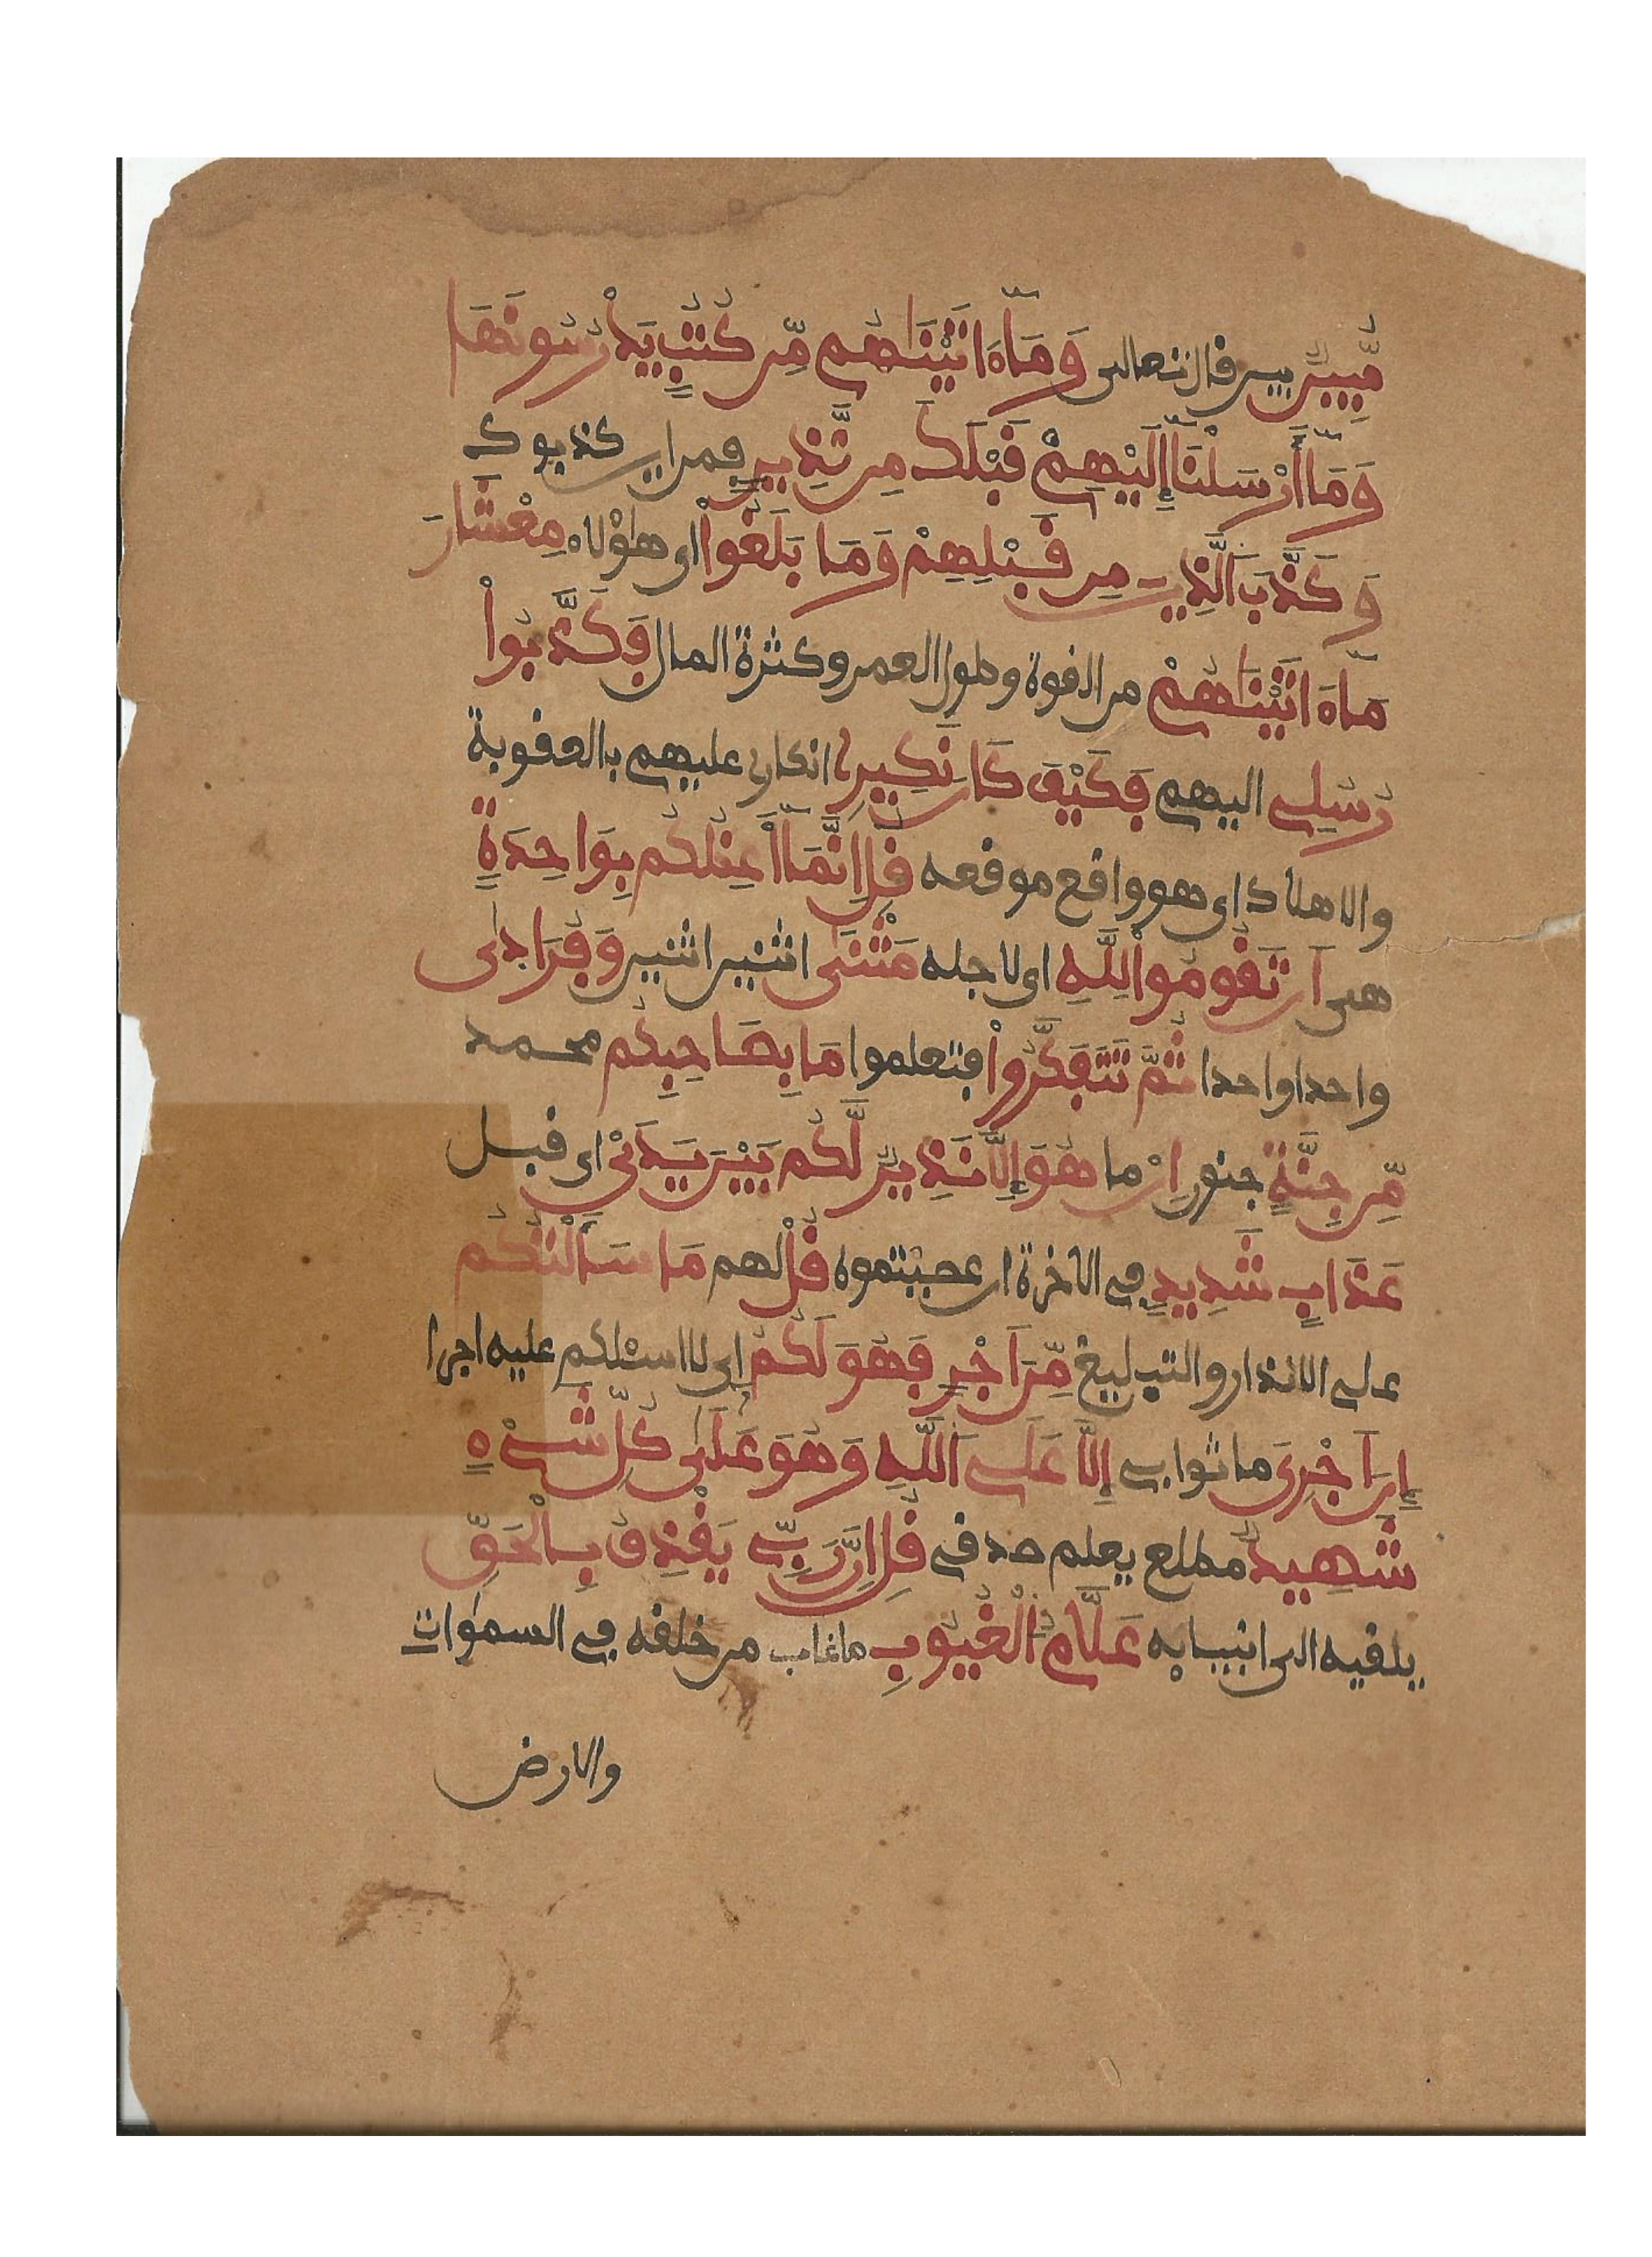 مُّبِينٌ بين قال تعالى وَمَآ ءَاتَيْنَٰهُم مِّن كُتُبٍ يَدْرُسُونَهَا
وَمَآ أَرْسَلْنَآ إِلَيْهِمْ قَبْلَكَ مِن نَّذِيرٍ فمن اين كذبوك
وَكَذَّبَ ٱلَّذِينَ مِن قَبْلِهِمْ وَمَا بَلَغُوا۟ اى هؤلاء مِعْشَارَ
مَآ ءَاتَيْنَٰهُمْ من القوة وطول العمر وكثرة المال فَكَذَّبُوا۟
رُسُلِي اليهم فَكَيْفَ كَانَ نَكِيرِ انكارى عليهم بالعقوبة
والاهلاك اى هو واقع موقعه قُلْ إِنَّمَآ أَعِظُكُم بِوَاحِدَةٍ
هى أَن تَقُومُوا۟ لِلَّهِ اى لاجله مَثْنَىٰ اثنين اثنين وَفُرَادَىٰ
واحدا واحدا ثُمَّ تَتَفَكَّرُوا۟ فتعلموا مَا بِصَاحِبِكُم محمد
مِّن جِنَّةٍ جنون إِنْ ما هُوَ إِلَّا نَذِيرٌ لَّكُم بَيْنَ يَدَيْ اى قبل
عَذَابٍ شَدِيدٍ في الاخرة ان عصيتموه قُلْ لهم مَا سَأَلْتُكُم
على الانذار والتبليغ مِّنَ أَجْرٍ فَهُوَ لَكُمْ اى لا اسئلكم عليه اجرا
إِنَ أَجْرِيَ ما ثوابي إِلَّا عَلَى ٱللَّهِ وَهُوَ عَلَىٰ كُلِّ شَيْءٍ
شَهِيدٌ مطلع يعلم صدقي قُلْ إِنَّ رَبِّي يَقْذِفُ بِالْحَقِّ
يلقيه الى انبيايه عَلَّامُ الْغُيُوبِ ما غاب من خلقه في السموات
والارض